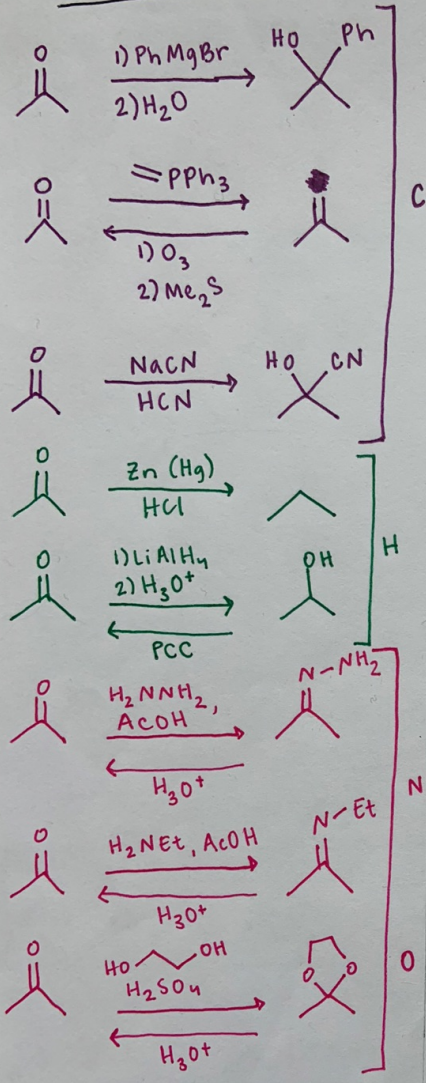 O
1) PhMgBr
2) H₂O
HO Ph
O
=PPh₃
1) O₃
2) Me₂S
C
O
NaCN
HCN
HO CN
O
Zn (Hg)
HCl
O
1) LiAlH₄
2) H₃O⁺
PCC
OH
H
O
H₂NNH₂,
AcOH
H₃O⁺
N-NH₂
N
O
H₂NEt, AcOH
H₃O⁺
N-Et
O
HO OH
H₂SO₄
H₃O⁺
O O
O